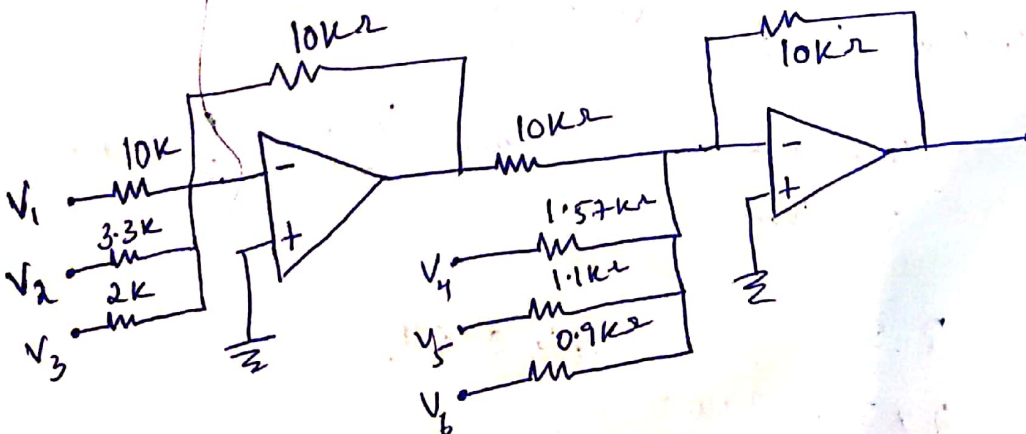 10KΩ
10KΩ
10K
10KΩ
V1
3.3K
V2
2K
V3
1.57KΩ
V4
1.1KΩ
V5
0.9KΩ
V6
-
+
-
+